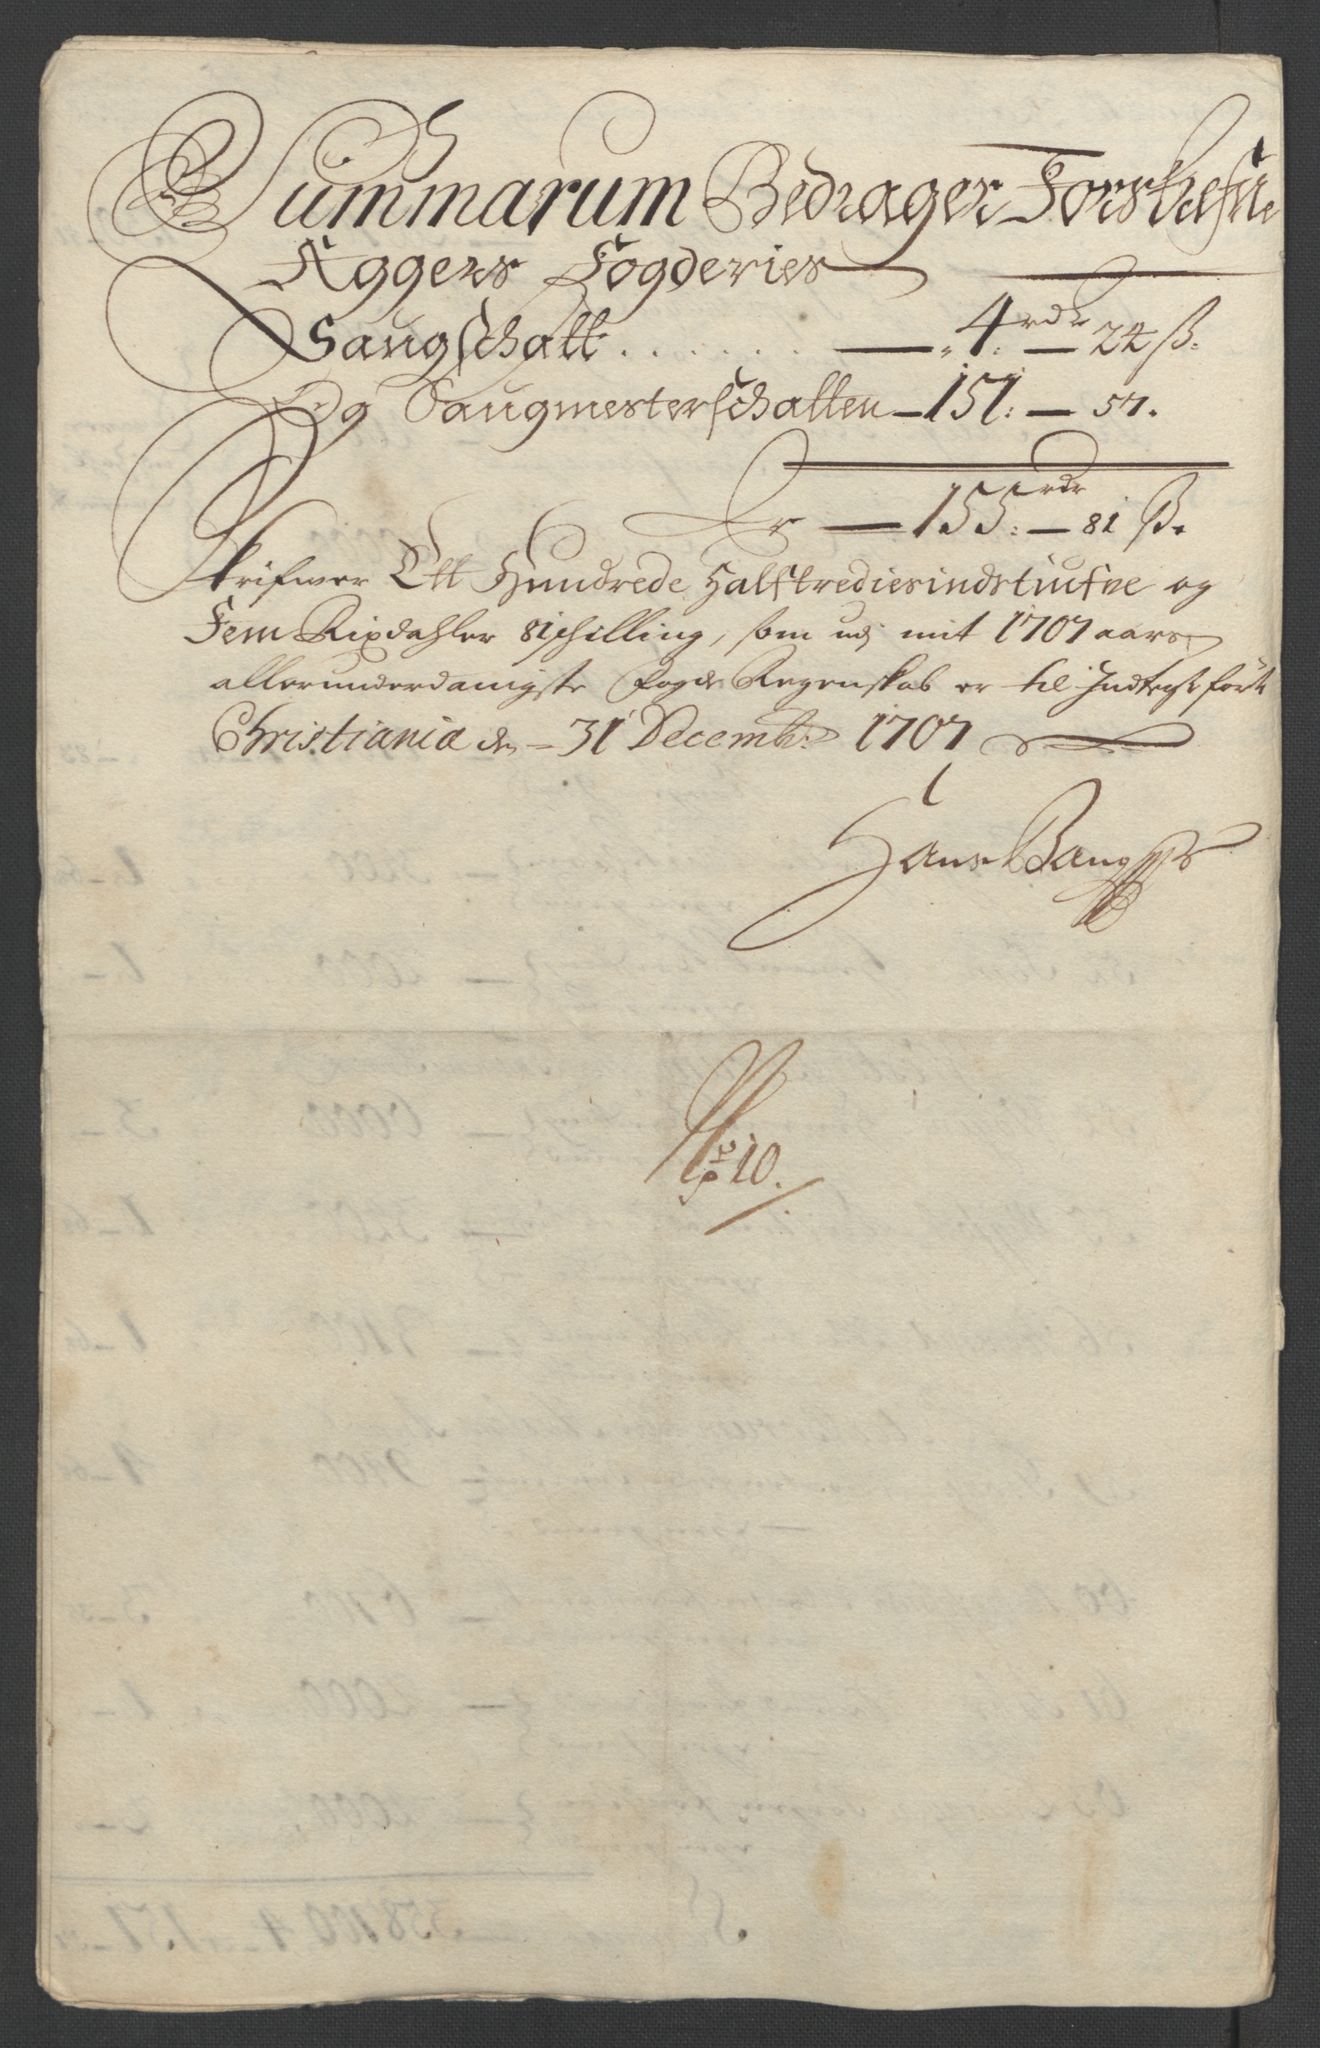 Summarum Bedrager Forskrefne
Aggers Fogderies
Saugschatt . . . . . . — 4 rdr — 24 ß:
Og Saugmesterschatten — 151: — 57.
Er — 155: rdr — 81 ß.
Skrifwer Ett Hundrede Halftrediesindstiufve og
Fem Rixdahler 81 schilling, som udj mit 1707 aars
allerunderdanigste Fogde Regenskab er til Indtegt fört
Christiania den — 31 Decembr: 1707
Hans Bang
No 10.